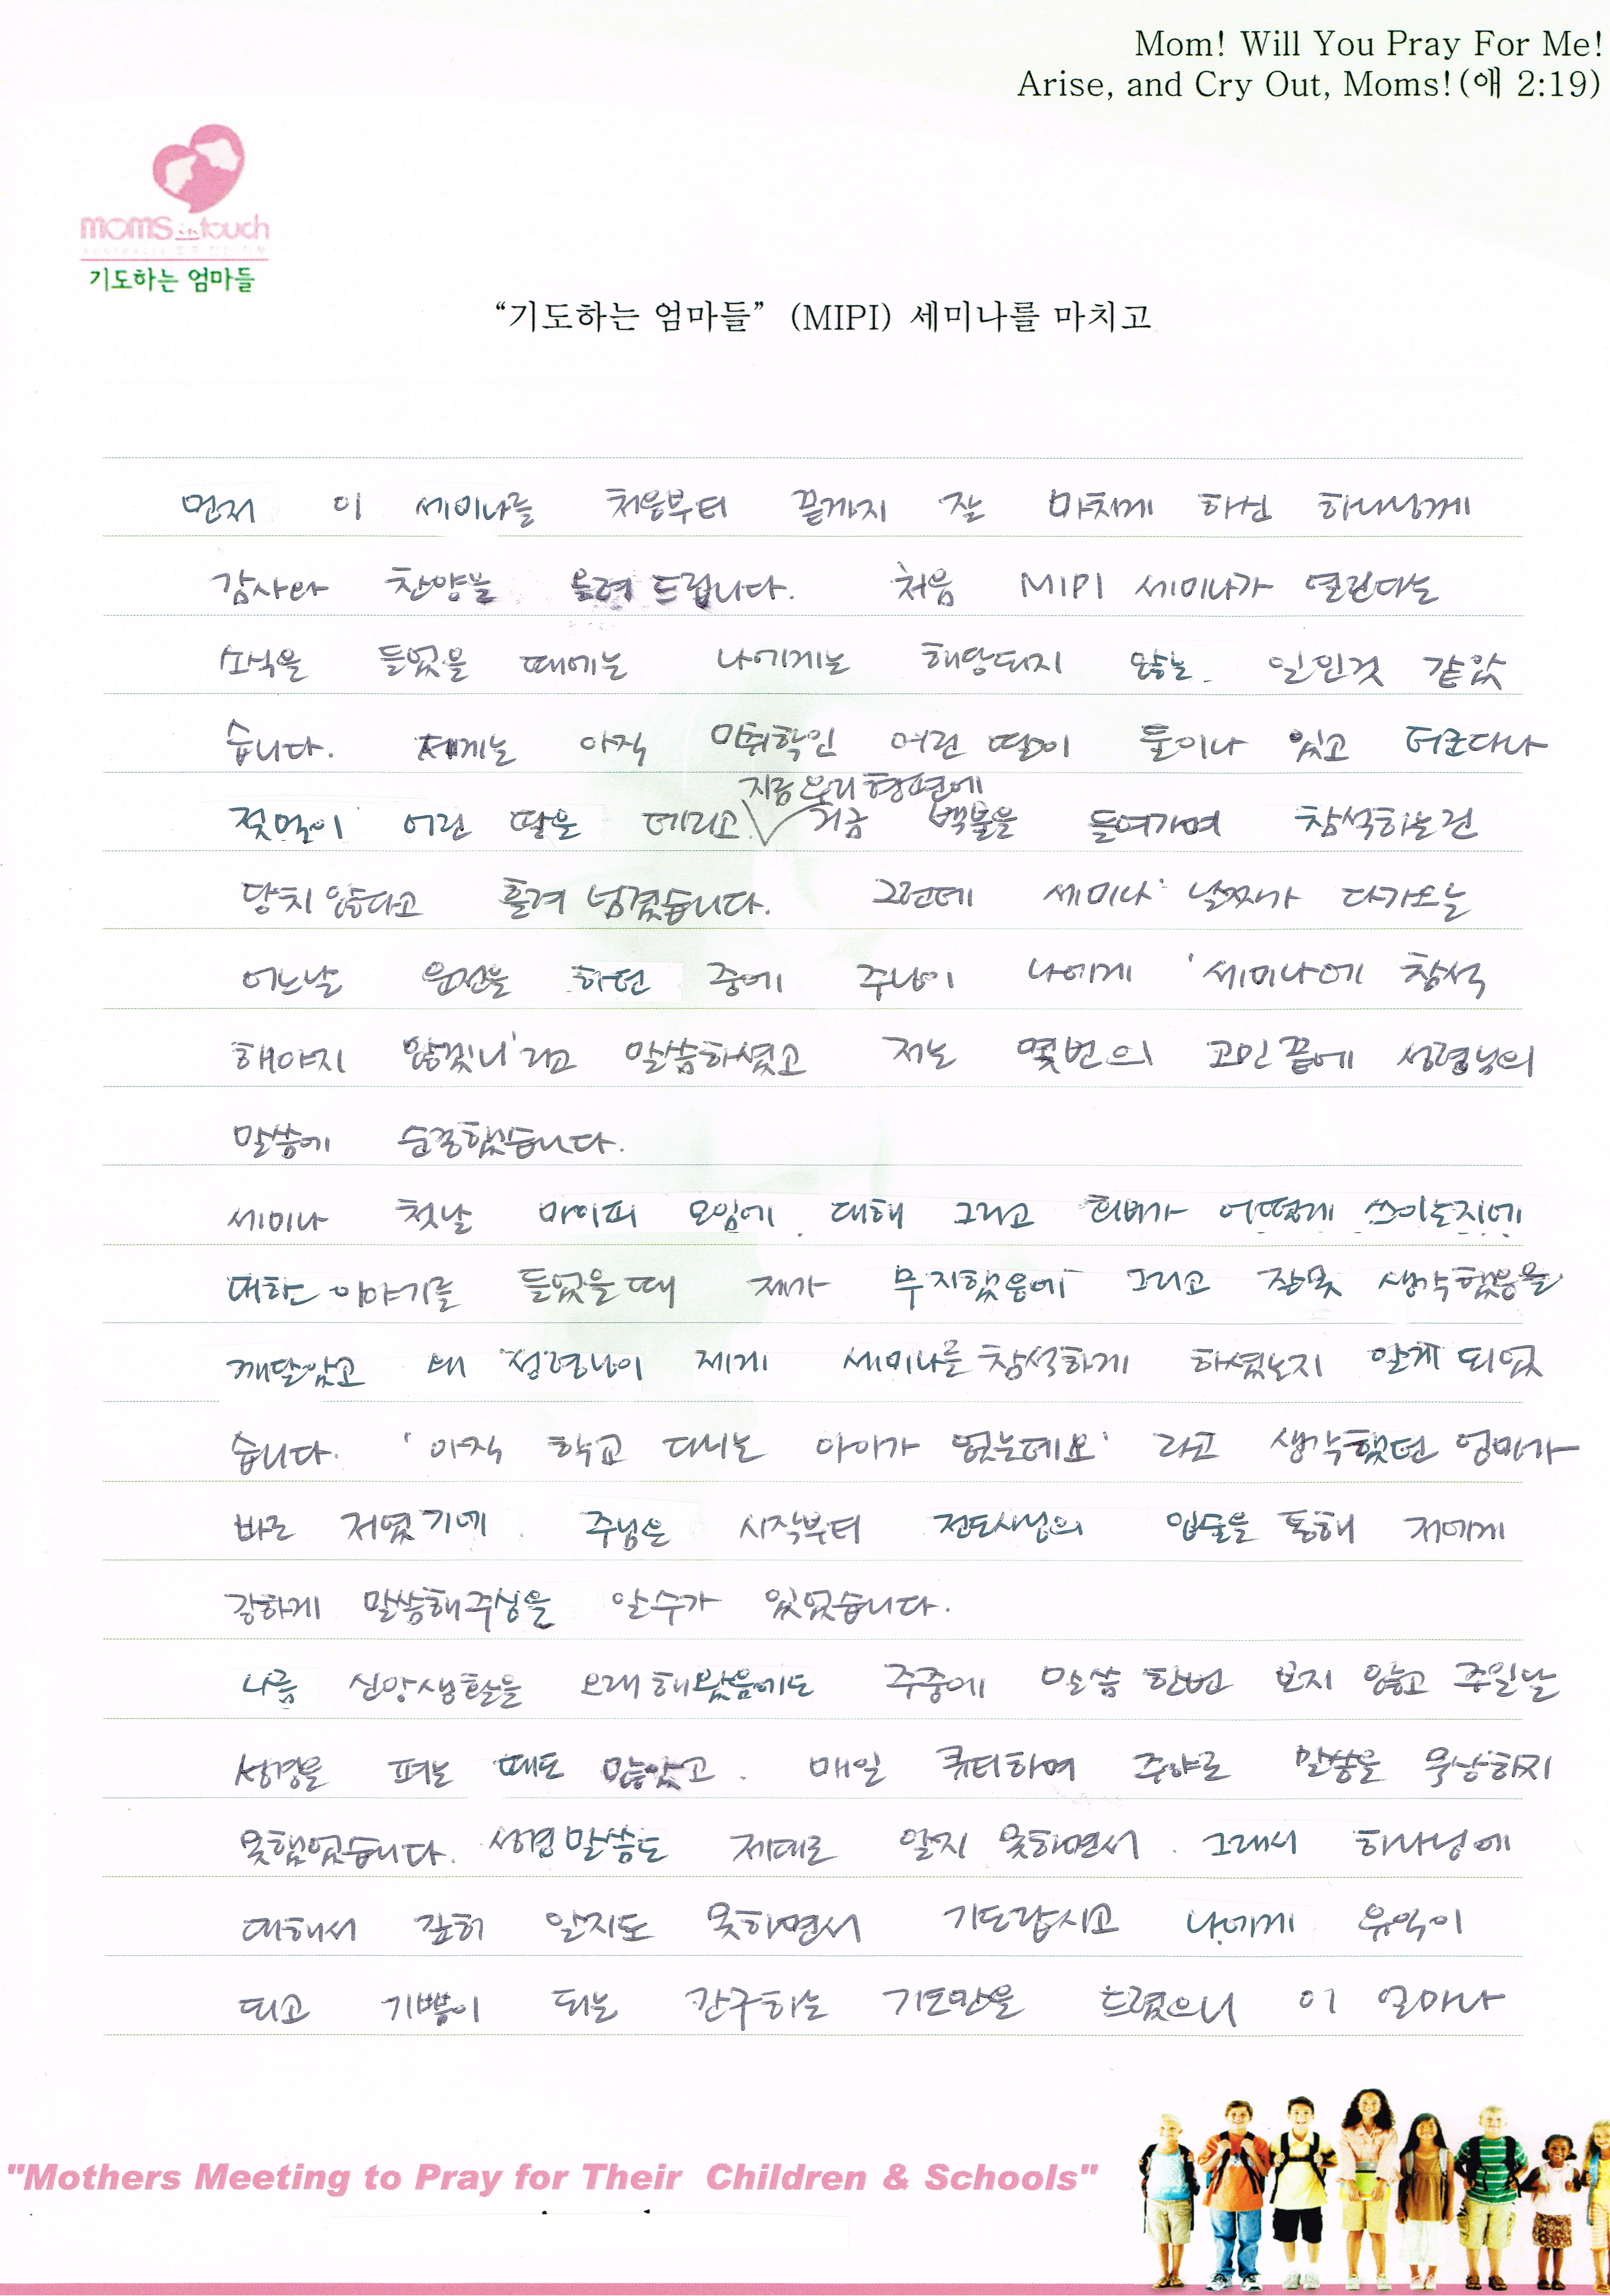 Mom! Will You Pray For Me!
Arise, and Cry Out, Moms!(애 2:19)
moms in touch
기도하는 엄마들
“기도하는 엄마들” (MIPI) 세미나를 마치고
먼저 이 세미나를 처음부터 끝까지 잘 마치게 하신 하나님께
감사와 찬양을 올려 드립니다. 처음 MIPI 세미나가 열린다는
소식을 들었을 때에는 나에게는 해당되지 않는 일인것 같았
습니다. 제게는 아직 미취학인 어린 딸이 둘이나 있고 더군다나
지금 우리 형편에
젖먹이 어린 딸을 데리고 거금 백불을 들여가며 참석하는건
당치 않다고 흘려 넘겼습니다. 그런데 세미나 날짜가 다가오늘
어느날 운전을 하던 중에 주님이 나에게 '세미나에 참석
해야지 않겠니'라고 말씀하셨고 저는 몇번의 고민끝에 성령님의
말씀에 순종했습니다.
세미나 첫날 마이피 모임에 대해 그리고 회비가 어떻게 쓰이는지에
대한 이야기를 들었을때 제가 무지했음에 그리고 잘못 생각했음을
깨달았고 왜 성령님이 제게 세미나를 참석하게 하셨는지 알게 되었
습니다. '아직 학교 다니는 아이가 없는데요' 라고 생각했던 엄마가
바로 저였기에 주님은 시작부터 전도사님의 입술을 통해 저에게
강하게 말씀해주심을 알수가 있었습니다.
나름 신앙생활을 오래해왔음에도 주중에 말씀 한번 보지 않고 주일날
성경을 펴는 때도 많았고. 매일 큐티하며 주야로 말씀을 묵상하지
못했었습니다. 성경말씀도 제대로 알지 못하면서. 그래서 하나님에
대해서 감히 알지도 못하면서 기도랍시고 나에게 유익이
되고 기쁨이 되는 간구하는 기도만을 드렸으니 이 얼마나
"Mothers Meeting to Pray for Their Children & Schools"